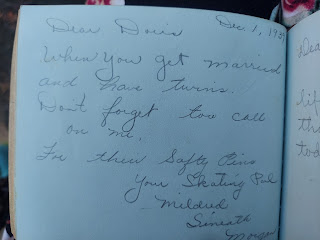 Dear Doris
Dec. 1, 19
When you get married
and have twins.
Don't forget too call
on me.
For their Safty Pins
Your Skating Pal
Mildred
Dea